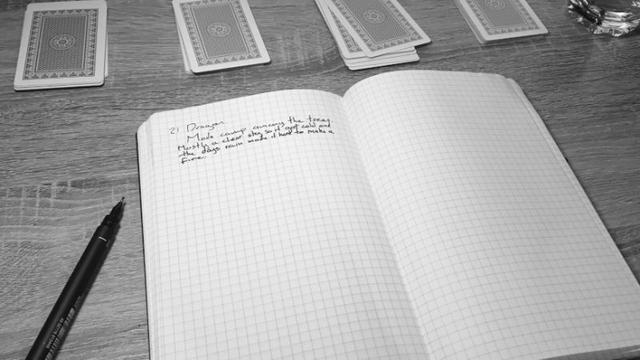 2) Dragon
Made camp among the trees
Mostly a clear sky so it got cold and
the days rain made it hard to make a
fire.